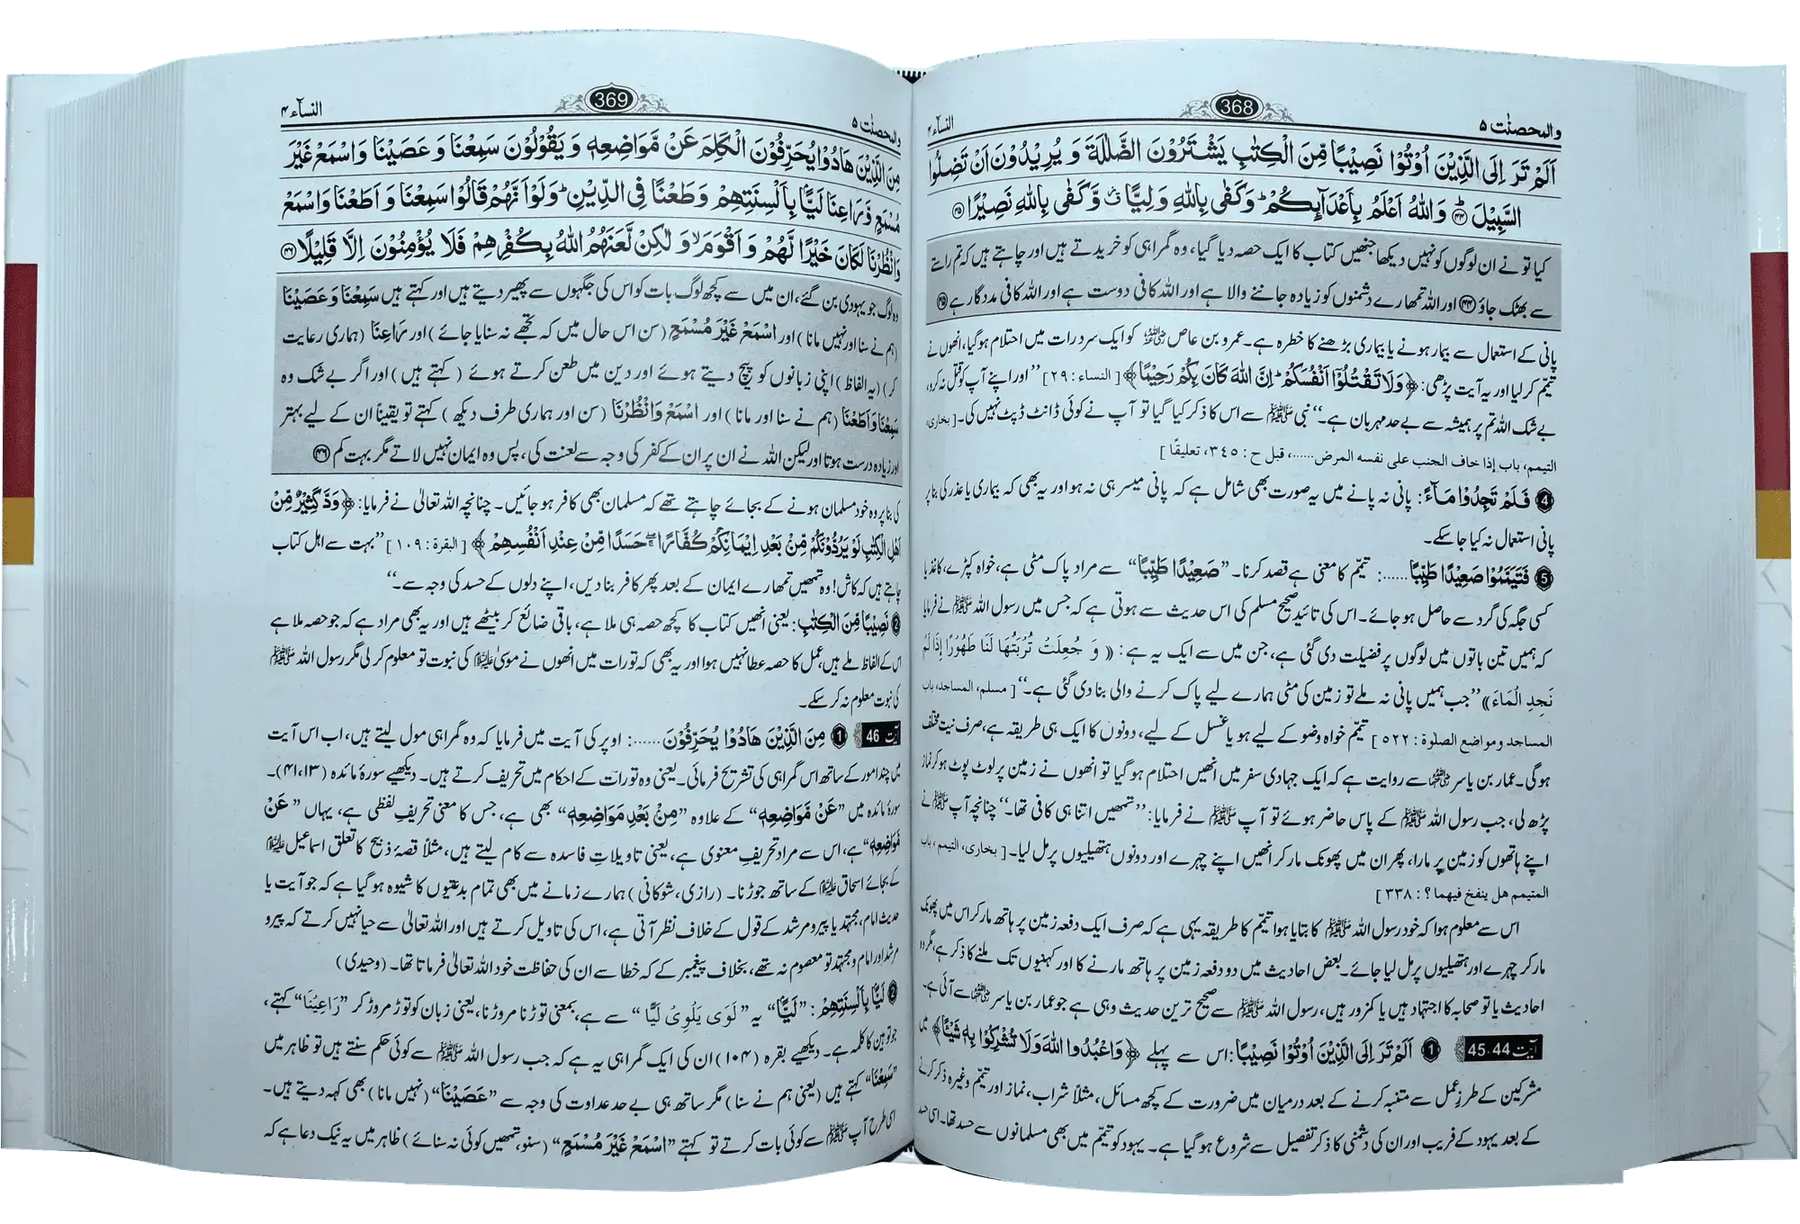 والمحصنٰت ۵
368
النسآء ۴
اَلَمْ تَرَ اِلَى الَّذِيْنَ اُوْتُوْا نَصِيْبًا مِّنَ الْكِتٰبِ يَشْتَرُوْنَ الضَّلٰلَةَ وَ يُرِيْدُوْنَ اَنْ تَضِلُّوا
السَّبِيْلَ ؕ۴۴ وَاللّٰهُ اَعْلَمُ بِاَعْدَآىِٕكُمْ ؕ وَكَفٰى بِاللّٰهِ وَلِيًّا ۙ وَّكَفٰى بِاللّٰهِ نَصِيْرًا ۴۵
کیا تو نے ان لوگوں کو نہیں دیکھا جنھیں کتاب کا ایک حصہ دیا گیا، وہ گمراہی کو خریدتے ہیں اور چاہتے ہیں کہ تم راستے
سے بھٹک جاؤ ۴۴ اور اللہ تمھارے دشمنوں کو زیادہ جاننے والا ہے اور اللہ کافی دوست ہے اور اللہ کافی مددگار ہے ۴۵
پانی کے استعمال سے بیمار ہونے یا بیماری بڑھنے کا خطرہ ہے۔ عمرو بن عاص رضی اللہ عنہ کو ایک سرد رات میں احتلام ہوگیا، انھوں نے
تیمم کر لیا اور یہ آیت پڑھی: ﴿وَلَا تَقْتُلُوْۤا اَنْفُسَكُمْ ؕ اِنَّ اللّٰهَ كَانَ بِكُمْ رَحِيْمًا﴾ [ النساء : ۲۹ ] ”اور اپنے آپ کو قتل نہ کرو،
بے شک اللہ تم پر ہمیشہ سے بے حد مہربان ہے۔“ نبی ﷺ سے اس کا ذکر کیا گیا تو آپ نے کوئی ڈانٹ ڈپٹ نہیں کی۔ [ بخاری،
التیمم، باب إذا خاف الجنب علی نفسه المرض……، قبل ح : ۳٤٥، تعلیقًا ]
4 فَلَمْ تَجِدُوْا مَآءً: پانی نہ پانے میں یہ صورت بھی شامل ہے کہ پانی میسر ہی نہ ہو اور یہ بھی کہ بیماری یا عذر کی بنا پر
پانی استعمال نہ کیا جا سکے۔
5 فَتَيَمَّمُوْا صَعِيْدًا طَيِّبًا……: تیمم کا معنی ہے قصد کرنا۔ ”صَعِيْدًا طَيِّبًا“ سے مراد پاک مٹی ہے، خواہ کپڑے، کاغذ یا
کسی جگہ کی گرد سے حاصل ہو جائے۔ اس کی تائید صحیح مسلم کی اس حدیث سے ہوتی ہے کہ جس میں رسول اللہ ﷺ نے فرمایا
کہ ہمیں تین باتوں میں لوگوں پر فضیلت دی گئی ہے، جن میں سے ایک یہ ہے: (( وَ جُعِلَتْ تُرْبَتُهَا لَنَا طَهُوْرًا إِذَا لَمْ
نَجِدِ الْمَاءَ )) ”جب ہمیں پانی نہ ملے تو زمین کی مٹی ہمارے لیے پاک کرنے والی بنا دی گئی ہے۔“ [ مسلم، المساجد، باب
المساجد ومواضع الصلوة : ٥٢٢ ] تیمم خواہ وضو کے لیے ہو یا غسل کے لیے، دونوں کا ایک ہی طریقہ ہے، صرف نیت مختلف
ہوگی۔ عمار بن یاسر رضی اللہ عنہما سے روایت ہے کہ ایک جہادی سفر میں انھیں احتلام ہو گیا تو انھوں نے زمین پر لوٹ پوٹ ہو کر نماز
پڑھ لی، جب رسول اللہ ﷺ کے پاس حاضر ہوئے تو آپ ﷺ نے فرمایا: ”تمھیں اتنا ہی کافی تھا۔“ چنانچہ آپ ﷺ نے
اپنے ہاتھوں کو زمین پر مارا، پھر ان میں پھونک مار کر انھیں اپنے چہرے اور دونوں ہتھیلیوں پر مل لیا۔ [ بخاری، التیمم، باب
المتیمم هل ینفخ فیهما؟ : ٣٣٨ ]
اس سے معلوم ہوا کہ خود رسول اللہ ﷺ کا بتایا ہوا تیمم کا طریقہ یہی ہے کہ صرف ایک دفعہ زمین پر ہاتھ مار کر اس میں پھونک
مار کر چہرے اور ہتھیلیوں پر مل لیا جائے۔ بعض احادیث میں دو دفعہ زمین پر ہاتھ مارنے کا اور کہنیوں تک ملنے کا ذکر ہے، مگر وہ
احادیث یا تو صحابہ کا اجتہاد ہیں یا کمزور ہیں، رسول اللہ ﷺ سے صحیح ترین حدیث وہی ہے جو عمار بن یاسر رضی اللہ عنہما سے آئی ہے۔
آیت 45.44 1 اَلَمْ تَرَ اِلَى الَّذِيْنَ اُوْتُوْا نَصِيْبًا: اس سے پہلے ﴿وَاعْبُدُوا اللّٰهَ وَلَا تُشْرِكُوْا بِهٖ شَيْـًٔا﴾ میں
مشرکین کے طرز عمل سے متنبہ کرنے کے بعد درمیان میں ضرورت کے کچھ مسائل، مثلاً شراب، نماز اور تیمم وغیرہ ذکر کرنے
کے بعد یہود کے فریب اور ان کی دشمنی کا ذکر تفصیل سے شروع ہو گیا ہے۔ یہود کو تیمم میں بھی مسلمانوں سے حسد تھا۔ اسی حسد
والمحصنٰت ۵
369
النسآء ۴
مِنَ الَّذِيْنَ هَادُوْا يُحَرِّفُوْنَ الْكَلِمَ عَنْ مَّوَاضِعِهٖ وَ يَقُوْلُوْنَ سَمِعْنَا وَ عَصَيْنَا وَ اسْمَعْ غَيْرَ
مُسْمَعٍ وَّ رَاعِنَا لَيًّۢا بِاَلْسِنَتِهِمْ وَ طَعْنًا فِى الدِّيْنِ ؕ وَ لَوْ اَنَّهُمْ قَالُوْا سَمِعْنَا وَ اَطَعْنَا وَ اسْمَعْ
وَ انْظُرْنَا لَكَانَ خَيْرًا لَّهُمْ وَ اَقْوَمَ ۙ وَ لٰكِنْ لَّعَنَهُمُ اللّٰهُ بِكُفْرِهِمْ فَلَا يُؤْمِنُوْنَ اِلَّا قَلِيْلًا ۴۶
وہ لوگ جو یہودی بن گئے، ان میں سے کچھ لوگ بات کو اس کی جگہوں سے پھیر دیتے ہیں اور کہتے ہیں سَمِعْنَا وَ عَصَيْنَا
(ہم نے سنا اور نہیں مانا) اور اسْمَعْ غَيْرَ مُسْمَعٍ (سن اس حال میں کہ تجھے نہ سنایا جائے) اور رَاعِنَا (ہماری رعایت
کر) (یہ الفاظ) اپنی زبانوں کو پیچ دیتے ہوئے اور دین میں طعن کرتے ہوئے (کہتے ہیں) اور اگر بے شک وہ
سَمِعْنَا وَ اَطَعْنَا (ہم نے سنا اور مانا) اور اسْمَعْ وَ انْظُرْنَا (سن اور ہماری طرف دیکھ) کہتے تو یقیناً ان کے لیے بہتر
اور زیادہ درست ہوتا اور لیکن اللہ نے ان پر ان کے کفر کی وجہ سے لعنت کی، پس وہ ایمان نہیں لاتے مگر بہت کم ۴۶
کی بنا پر وہ خود مسلمان ہونے کے بجائے چاہتے تھے کہ مسلمان بھی کافر ہو جائیں۔ چنانچہ اللہ تعالیٰ نے فرمایا: ﴿ وَدَّ كَثِيْرٌ مِّنْ
اَهْلِ الْكِتٰبِ لَوْ يَرُدُّوْنَكُمْ مِّنْۢ بَعْدِ اِيْمَانِكُمْ كُفَّارًا ۖۚ حَسَدًا مِّنْ عِنْدِ اَنْفُسِهِمْ ﴾ [ البقرة : ۱۰۹ ] ”بہت سے اہل کتاب
چاہتے ہیں کہ کاش! وہ تمھیں تمھارے ایمان کے بعد پھر کافر بنا دیں، اپنے دلوں کے حسد کی وجہ سے۔“
2 نَصِيْبًا مِّنَ الْكِتٰبِ: یعنی انھیں کتاب کا کچھ حصہ ہی ملا ہے، باقی ضائع کر بیٹھے ہیں اور یہ بھی مراد ہے کہ جو حصہ ملا ہے
اس کے الفاظ ملے ہیں، عمل کا حصہ عطا نہیں ہوا اور یہ بھی کہ تورات میں انھوں نے موسیٰ علیہ السلام کی نبوت تو معلوم کر لی مگر رسول اللہ ﷺ
کی نبوت معلوم نہ کر سکے۔
آیت 46 1 مِنَ الَّذِيْنَ هَادُوْا يُحَرِّفُوْنَ……: اوپر کی آیت میں فرمایا کہ وہ گمراہی مول لیتے ہیں، اب اس آیت
میں چند امور کے ساتھ اس گمراہی کی تشریح فرمائی۔ یعنی وہ تورات کے احکام میں تحریف کرتے ہیں۔ دیکھیے سورۂ مائدہ (۱۳، ۴۱)۔
سورۂ مائدہ میں ”عَنْ مَّوَاضِعِهٖ“ کے علاوہ ”مِنْۢ بَعْدِ مَوَاضِعِهٖ“ بھی ہے، جس کا معنی تحریفِ لفظی ہے، یہاں ”عَنْ
مَّوَاضِعِهٖ“ ہے، اس سے مراد تحریفِ معنوی ہے، یعنی تاویلاتِ فاسدہ سے کام لیتے ہیں، مثلاً قصۂ ذبیح کا تعلق اسماعیل علیہ السلام
کے بجائے اسحاق علیہ السلام کے ساتھ جوڑنا۔ (رازی، شوکانی) ہمارے زمانے میں بھی تمام بدعتیوں کا شیوہ ہو گیا ہے کہ جو آیت یا
حدیث امام، مجتہد یا پیر و مرشد کے قول کے خلاف نظر آتی ہے، اس کی تاویل کرتے ہیں اور اللہ تعالیٰ سے حیا نہیں کرتے کہ پیر و
مرشد اور امام و مجتہد تو معصوم نہ تھے، بخلاف پیغمبر کے کہ خطا سے ان کی حفاظت خود اللہ تعالیٰ فرماتا تھا۔ (وحیدی)
2 لَيًّۢا بِاَلْسِنَتِهِمْ: ”لَيًّا“ یہ ”لَوَى يَلْوِيْ لَيًّا“ سے ہے، بمعنی توڑنا مروڑنا، یعنی زبان کو توڑ مروڑ کر ”رَاعِيْنَا“ کہتے،
جو توہین کا کلمہ ہے۔ دیکھیے بقرہ (۱۰۴) ان کی ایک گمراہی یہ ہے کہ جب رسول اللہ ﷺ سے کوئی حکم سنتے ہیں تو ظاہر میں
”سَمِعْنَا“ کہتے ہیں (یعنی ہم نے سنا) مگر ساتھ ہی بے حد عداوت کی وجہ سے ”عَصَيْنَا“ (نہیں مانا) بھی کہہ دیتے ہیں۔
اسی طرح آپ ﷺ سے کوئی بات کرتے تو کہتے ”اسْمَعْ غَيْرَ مُسْمَعٍ“ (سنو، تمھیں کوئی نہ سنائے) ظاہر میں یہ نیک دعا ہے کہ